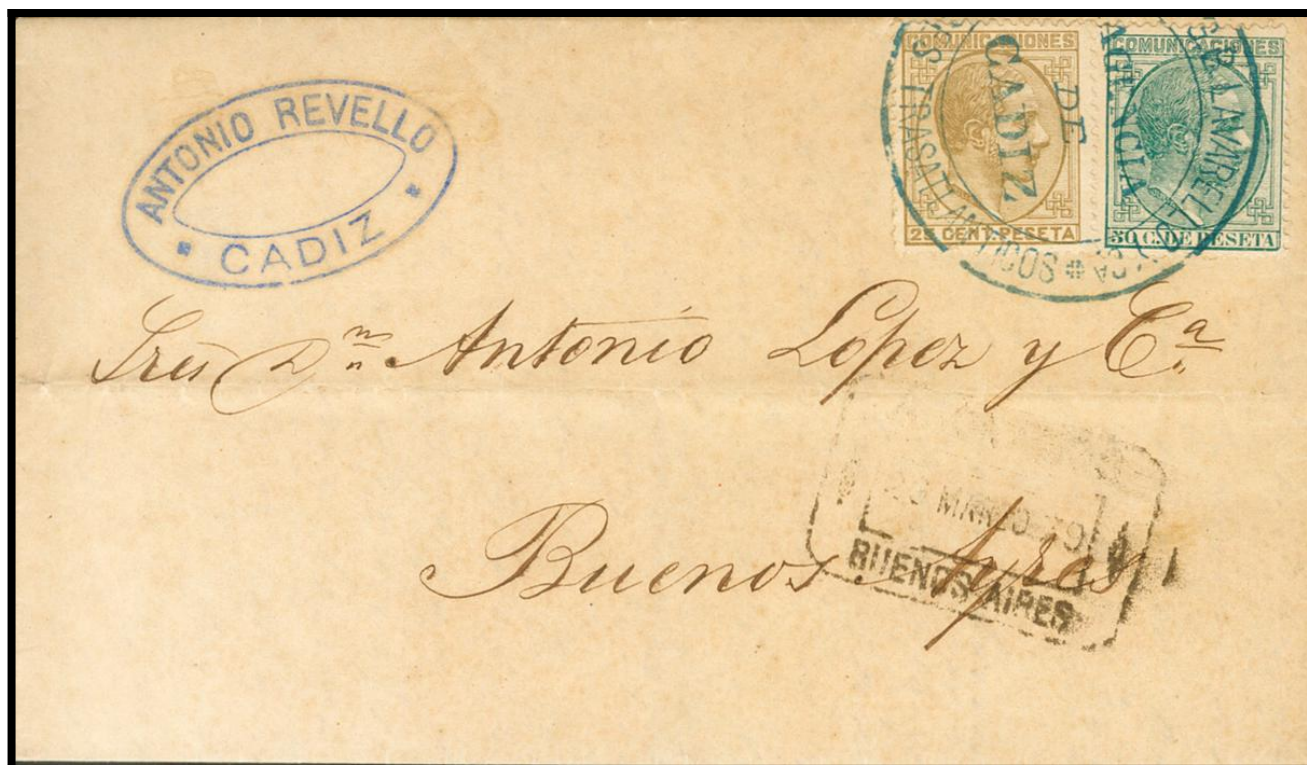 ANTONIO REVELLO
CADIZ
COMUNICACIONES
25 CENT. PESETA
COMUNICACIONES
50 C. DE PESETA
DE
CADIZ
TRASATLANTICOS
LAVARELLO
Sres Dn Antonio López y Ca.
Buenos Ayres
MARZO 79
BUENOS AIRES